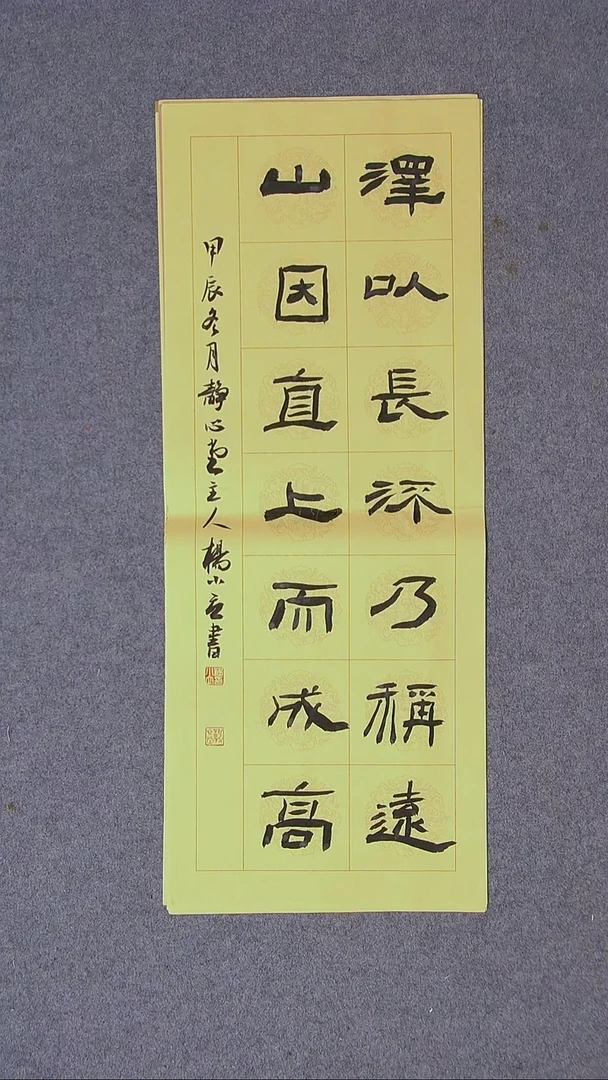 澤以長流乃稱遠
山因直上而成高
甲辰冬月靜心堂主人楊小立書